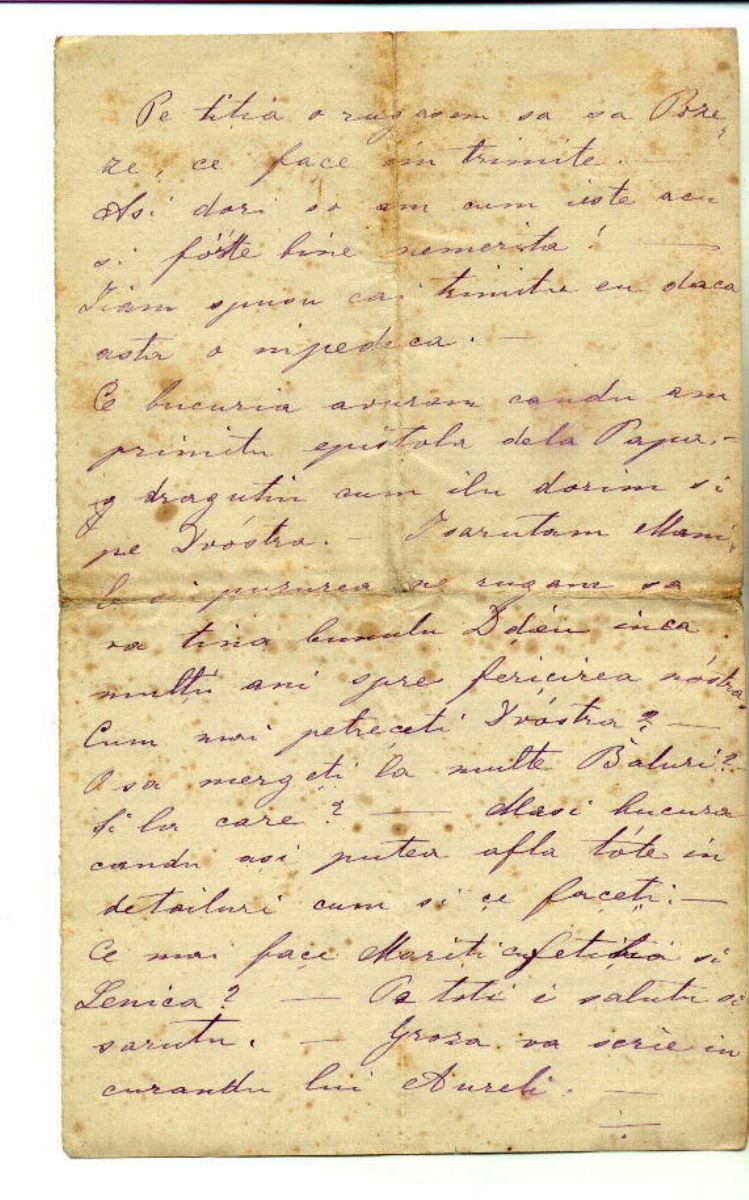 Pe titia o rugasem sa sa Poze
ze, ce façe im trimite. —
Asi dori so am cum ieste acu
si fóste bine nemerita! —
Iiam spusu cai trimitu eu daca
asta o inpedeca. —
Ce bucuria avuram candu am
primitu epistola dela Papa. —
dragutiu cum ilu dorim si
pe Dvóstra. — I sarutam Mani
le si pururea ne rugam sa
va tina bunulu Ddeu inca
multii ani spre fericirea nóstra.
Cum mai petreceti Dvóstra? —
O sa mergeti la multe Baluri?
Si la care? — Masi bucura
candu asi putea afla tóte in
detailuri cum si çe façeti. —
Ce mai façe Mariti cu fetitia si
Lenica? — Pe toti i salutu si
sarutu. — Groza va scrie in
curandu lui Aureli. —